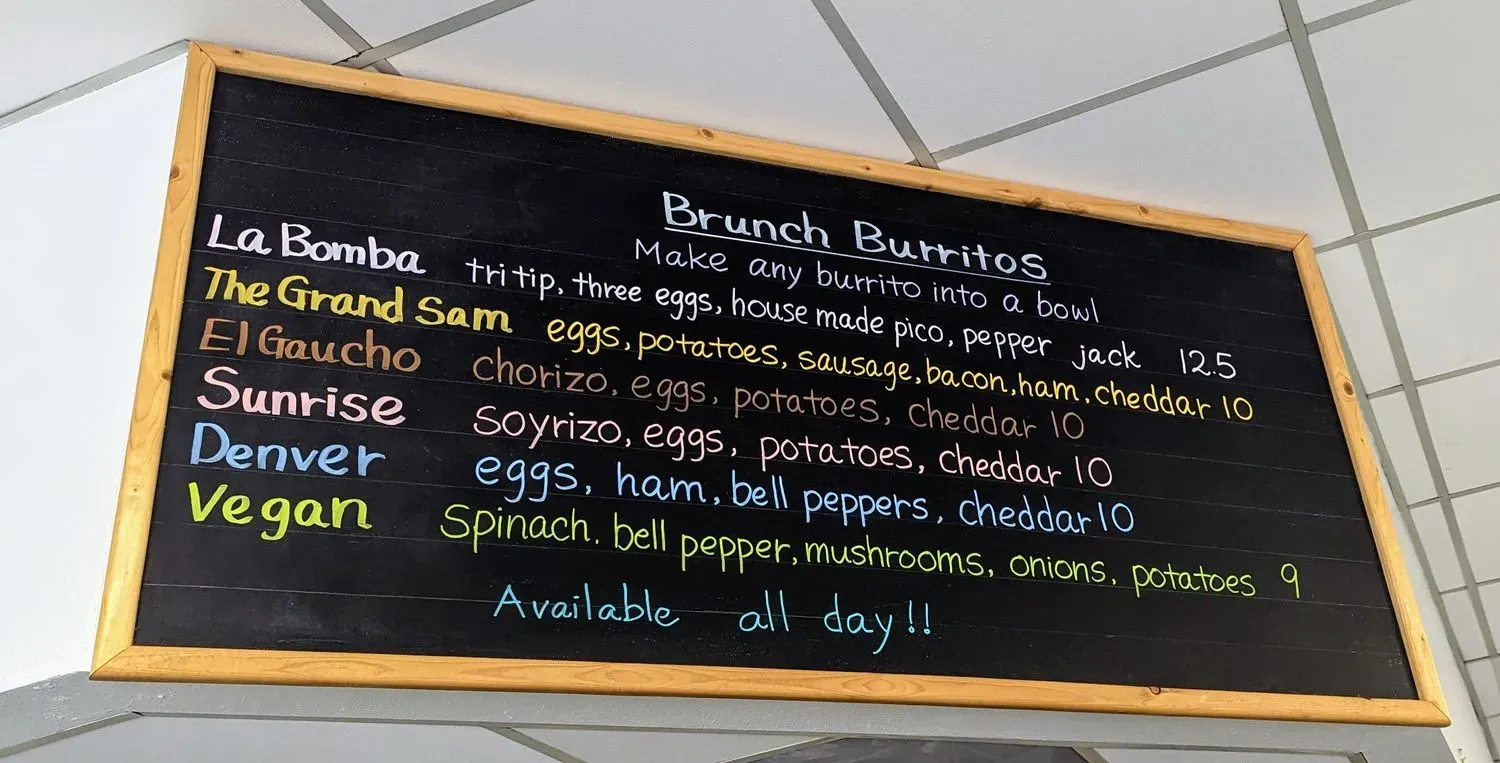 Brunch Burritos
Make any burrito into a bowl
La Bomba tri tip, three eggs, house made pico, pepper jack 12.5
The Grand Sam eggs, potatoes, sausage, bacon, ham, cheddar 10
El Gaucho chorizo, eggs, potatoes, cheddar 10
Sunrise soyrizo, eggs, potatoes, cheddar 10
Denver eggs, ham, bell peppers, cheddar 10
Vegan Spinach. bell pepper, mushrooms, onions, potatoes 9
Available all day!!